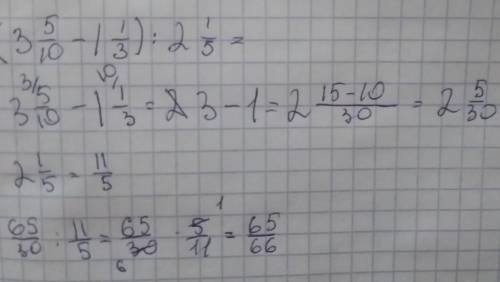 (3 5/10 - 1 1/3) : 2 1/5 =
3 5/10 - 1 1/3 = 3 - 1 = 2 15-10/30 = 2 5/30
2 1/5 = 11/5
65/30 : 11/5 = 65/30 · 5/11 = 65/66